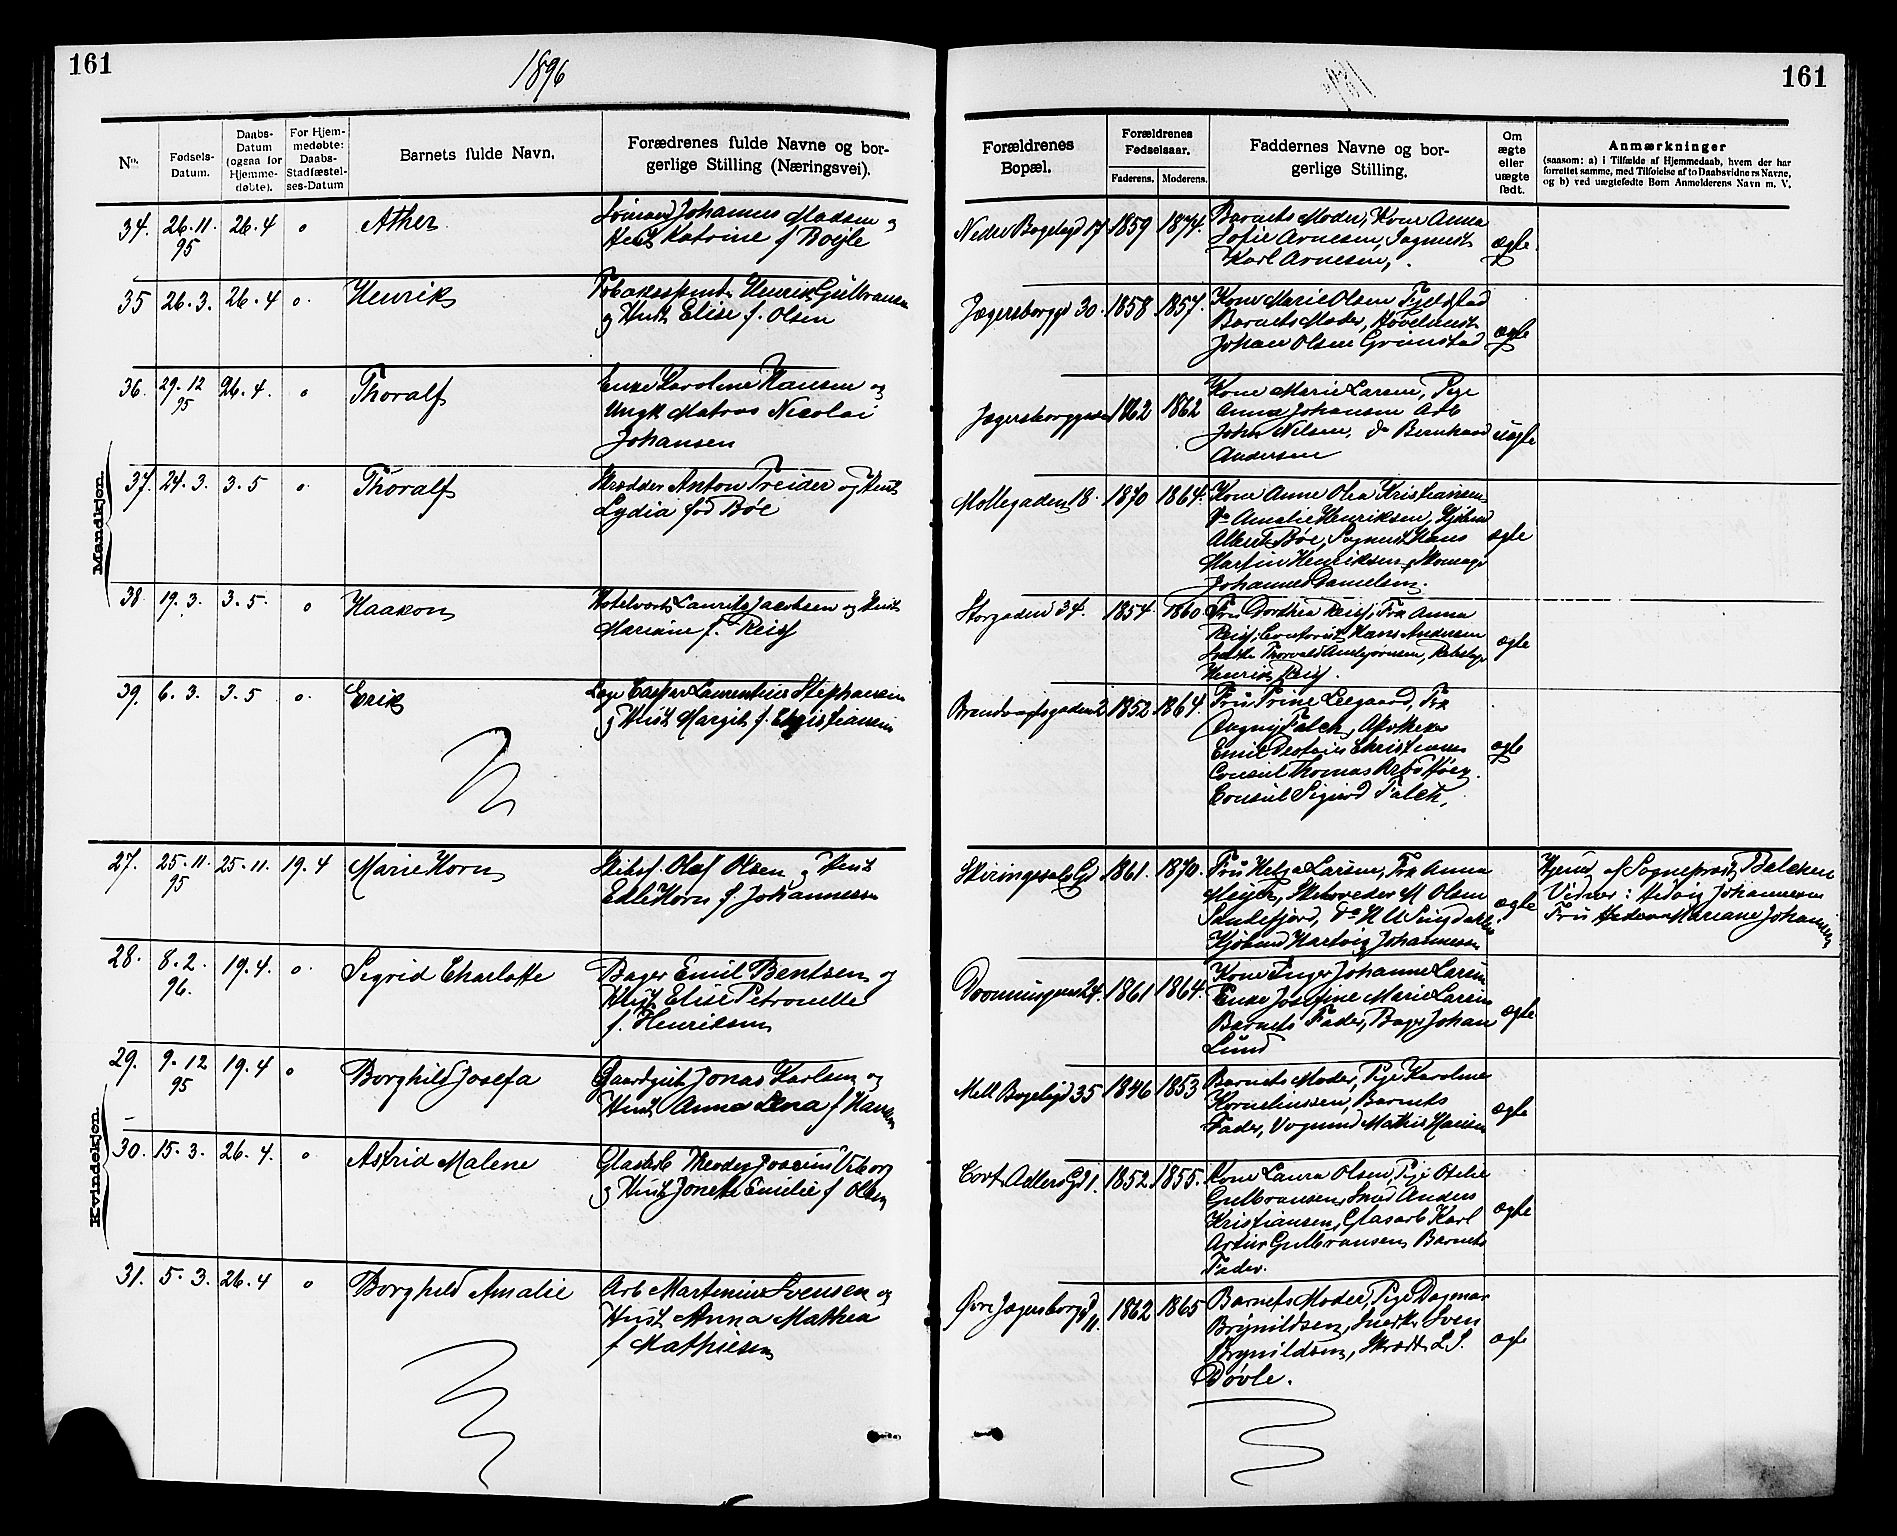 161
1896
161
No.
Fødsels-
Datum.
Daabs-
Datum
(ogsaa for
Hjemme-
døbte).
For Hjem-
medøbte:
Daabs-
Stadfæstel-
ses-Datum
Barnets fulde Navn.
Forædrenes fulde Navne og bor-
gerlige Stilling (Næringsvei).
Forældrenes
Bopæl.
Forældrenes
Fødselsaar.
Faderens. Moderens.
Faddernes Navne og bor-
gerlige Stilling.
Om
ægte
eller
uægte
født.
Anmærkninger
(saasom: a) i Tilfælde af Hjemmedaab, hvem der har
forrettet samme, med Tilføielse af to Daabsvidners Navne,
og b) ved uægtefødte Børn Anmelderens Navn m. V.
Mandkjøn.
34. 26.11.95 26.4 o Ather
Johannes Madsen og
Hust Katrine f Boijle
17 1859 1874.
Barnets Moder, Kone Anna
Sofie Arnesen,
Karl Arnesen,
ægte
35 26.3. 26.4 o. Henrik
Henrik Gulbransen
og Hust Elise f. Olsen
Jægersborggd 30. 1858 1857.
Kone Marie Olsen Fjeldstad
Barnets Moder,
Johan Olsen Grimstad
ægte
36. 29.12 95 26.4. o Thoralf
Enke Karoline Hansen og
Ungk Matros Nicolai
Johansen
Jægersborggaden 1862 1862
Kone Marie Larsen, Pige
Anna Johansen Arb
John Nilsen, do Bernhard
Andersen
uægte
37. 24.3. 3.5 o. Thoralf
Skrædder Anton Preider og Hust
Lydia fød Bøe
Møllegaden 18. 1870 1864.
Kone Anne Olea Kristiansen
do Amalie Henriksen,
Albert Bøe, Hans
Martin Henriksen, Skomag
Johannes Danielsen.
ægte
38. 19.3. 3.5. o Haakon
Hotelvært Lauritz Jacobsen og Hust
Mariane f. Reiss
Storgaden 34. 1854 1860
Fru Dorthea Reiss, Frk Anna
Reiss, Contorist Hans Andersen
Thorvald
Henrik Reiss.
ægte
39. 6.3. 3.5 o. Erik
Læge Casper Laurentius Stephansen
og Hust Margit f. Christiansen
Brandvagtsgaden 2 1852 1864.
Fru Trine Leegaard, Frk
Dagny Falck, Apotheker
Emil Christiansen
Consul Thomas
Consul Sigurd Falck,
ægte
Kvindekjøn.
27. 25.11.95 25.11. 19.4 Marie Horn
Skibsf. Olaf Olsen og Hust
Edle Horn f. Johannesen
Skiringssals Gd 1861. 1870.
Fru Helga Larsen, Frk Anna
Meyer, Skibsreder M Olsen
Sandefjord,
Hartvig Johannesen
ægte
Hjemd af Sogneprest Balchen
Vidner: Hedvig Johannesen
Fru Mariane Johannesen
28. 8.2.96. 19.4. o. Sigrid Charlotte
Bager Emil Bentsen og
Hust Elise Petronelle
f. Henriksen
Dronningens 24. 1861 1864.
Kone Inger Johanne Larsen
Enke Josefine Marie Larsen
Barnets Fader, Bager Johan
Lund
ægte
29. 9.12 95 19.4 o Borghild Josefa
Gaardgut Jonas Karlsen og
Hust Anna Lena f Hansen
Mell Bøgeligd 35 1846 1853
Barnets Moder, Pige Karoline
Korneliussen, Barnets
Fader, Mathis Hansen
ægte
30. 15.3. 26.4. o Astrid Malene
Glasarb Theodor Joacim Viborg
og Hust Jonette Emilie f Olsen
Cort Adlers Gd 1. 1852 1855.
Kone Laura Olsen, Pige Otelie
Gulbransen, Smed Anders
Kristiansen, Glasarb Karl
Artur Gulbransen, Barnets
Fader.
ægte
31. 5.3. 26.4 o Borghild Amalie
Arb Martinius Svensen og
Hust Anna Mathea
f Mathiesen
Øvre Jægersborggd 11. 1862 1865
Barnets Moder, Pige Dagmar
Brynildsen, Snedk Sven
Brynildsen, Skrædd L.S.
Bøvle.
ægte